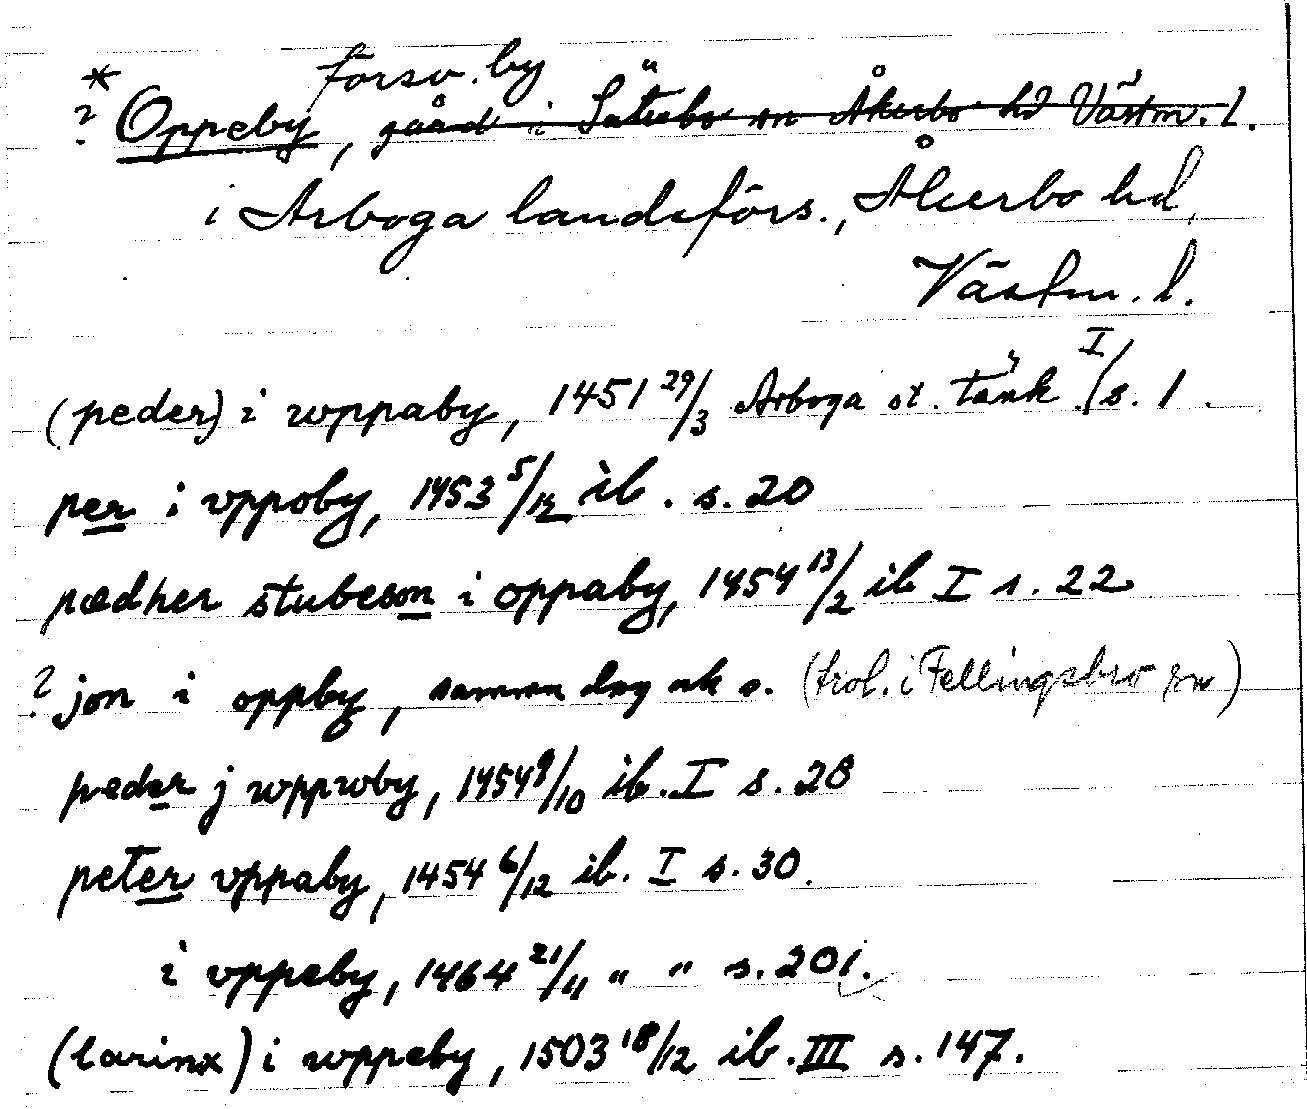 * försv. by
? Oppeby, gård i Säterbo sn Åkerbo hd Västm. l.
i Arboga landsförs., Åkerbo hd,
Västm. l.
(peder) i wppaby, 1451 29/3 Arboga st. tänk I/s. 1.
per i vppoby, 1453 5/12 ib. s. 20
pædher stubeson i oppaby, 1454 13/2 ib I s. 22
? jon i oppby, samma dag ok s. (trol. i Fellingsbro sn)
peder j wppwby, 1454 9/10 ib. I s. 28
peter vppaby, 1454 6/12 ib. I s. 30.
i vppeby, 1464 21/11 " " s. 201.
(larinx) i wppeby, 1503 18/12 ib. III s. 147.